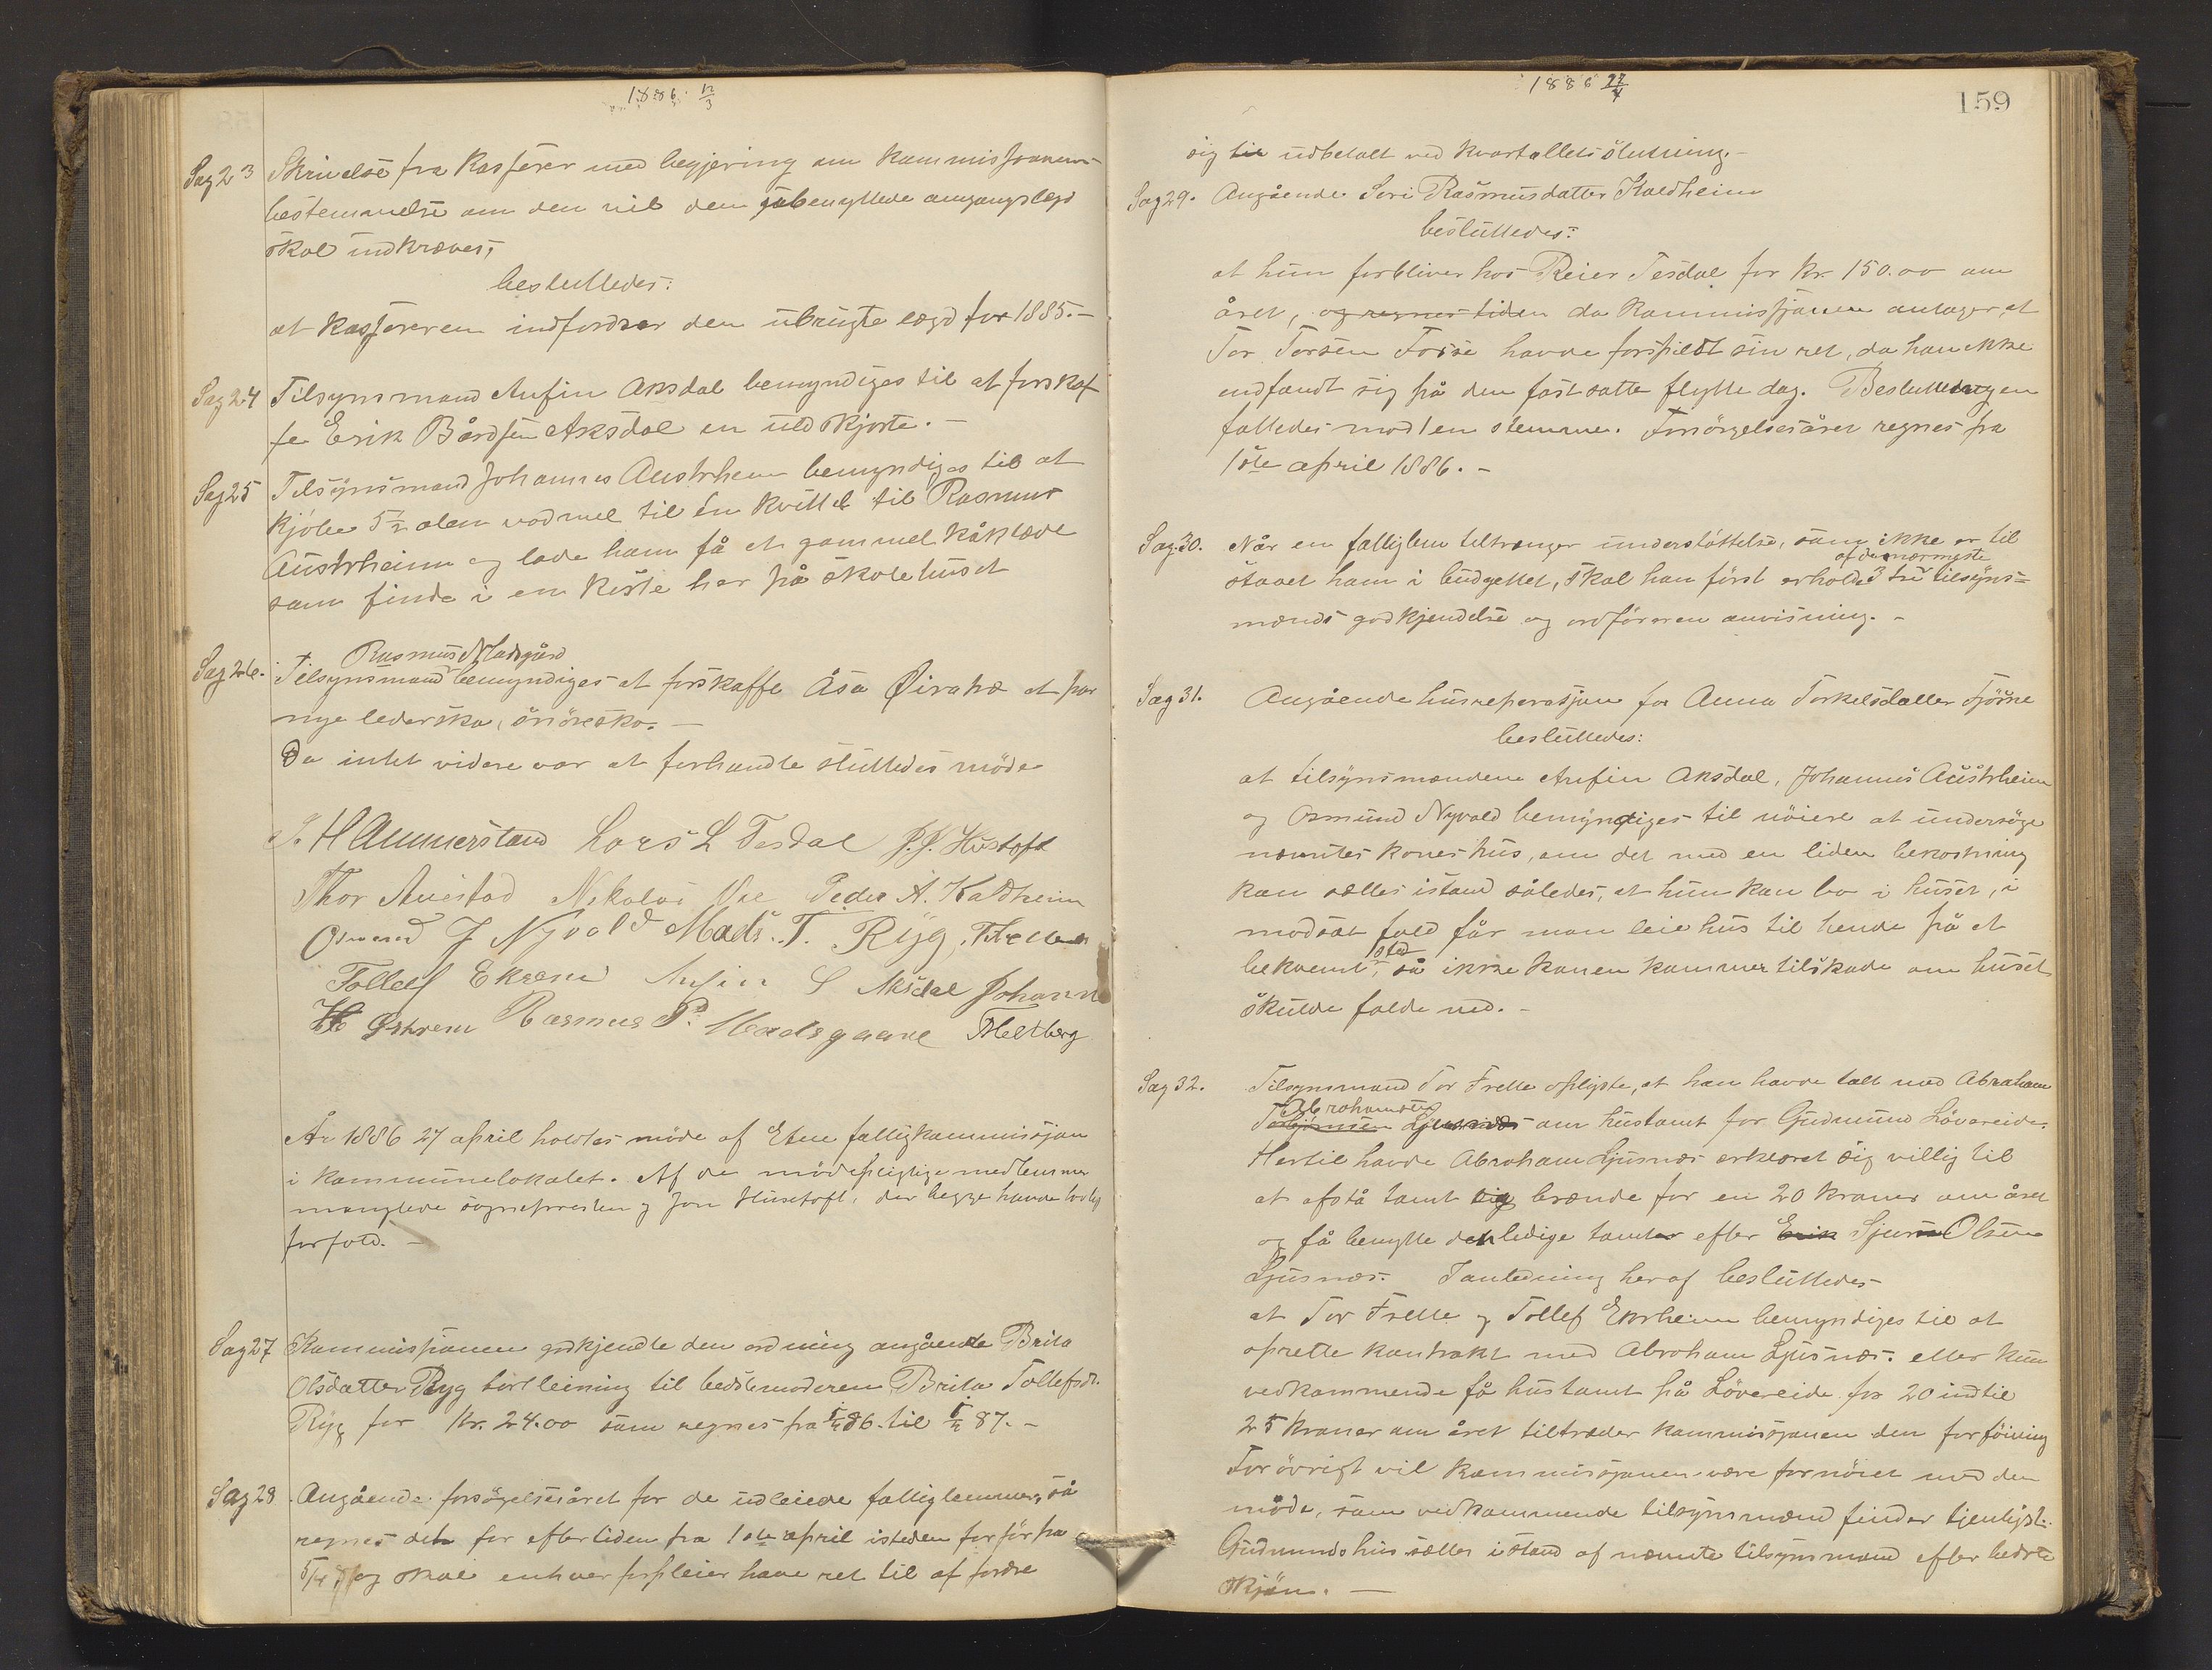 1886 12/3
Sag 23 Skrivelse fra Kasserer med begjering om kommissionens
bestemmelse om den vil den ubenyttede omgangslegd
skal indkræves,
besluttedes:
at kassereren indfordrer den ubrugte lægd for 1885.-
Sag 24 Tilsynsmand Anfin Aksdal bemyndiges til at forskaf
fe Erik Bårdsen Aksdal en uldskjorte. -
Sag 25 Tilsynsmand Johannes Austrheim bemyndiges til at
kjöbe 5½ alen vadmel til én kvittel til Rasmus
Austrheim og lade ham få et gammel 
som finde i en kiste her på skolehuset
Rasmus Madsgård
Sag 26. Tilsynsmand bemyndiges at forskaffe Åsa et par
nye ledersko, snöresko. -
Da intet videre var at forhandle sluttedes möde
H Ammerstand Lars L Tesdal J. J. Hustoft
Thor Auestad Nikolai Vee Peder A. Kaldheim
Osmund J Nyvold Mads. T. Ryg, T Frette
Tollef Ekrem Anfin S Aksdal Johann
H Østrem Rasmus P. Madsgaard T Meltberg
År 1886 27 april holdtes möde af Etne fattigkommissjon
i kommunelokalet. Af de mödepligtige medlemmer
manglede sogneprester og Jon Hustoft, der begge havde lovlig
forfald. -
Sag 27 Kommissionen godkjendte den ordning angående Brita
Olsdatter Ryg bortleining til bedstemoderen Brita Tollefsdt.
Ryg for Kr. 24.00 som regnes fra 86. til 87. -
Sag 28. Angående forsögelsesåret for de udleiede fattiglemmer, så
regnes det for eftertiden fra 1ste april isteden for för fra
og skal enhver forpleier have ret til at fordre
1886 27/4
159
sig til udbetalt ved kvartallets slutning. -
Sag 29. Angående Sori Rasmusdatter Kaldheim
besluttedes:
at hun forbliver hos Reier Tesdal for kr. 150.00 om
året, og regnes tiden da kommissjonen antager, at
Tor Torsen Fosse havde forspildt sin ret, da han ikke
indfandt sig på den fastsatte flyttedag. Beslutningen
fattedes mod 1 en stemme. Forsörgelsesåret regnes fra
1ste april 1886. -
Sag. 30. Når en fattiglem tiltrænger understöttelse, som ikke er til
af de nærmeste
staaet ham i budgettet, skal han först erholde 3 tre tilsyns=
mænds godkjendelse og ordföreren anvisning. -
Sag 31. Angående husreperatsjon for Anna Torkelsdatter Fjösne
besluttedes:
at tilsynsmændene Anfin Aksdal, Johannes Austrheim
og Osmund Nyvold bemyndiges til nöiere at undersöge
nævntes kones hus, om det med en liden bekostning
kan sættes istand således, at hun kan bo i huset, i
modsat fald får man leie hus til hende på et
sted
bekvemt, så ikke konen kommer tilskade om huset
skulde falde ned. -
Sag 32. Tilsynsmand Tor Frette oplyste, at han havde talt med Abraham
Abrahamsen
Torbjörnsen Ljusnæs om hustomt for Gudmund Lövareide.
Hertil havde Abraham Ljusnæs erklæret sig villig til
at afstå tomt og brænde for en 20 kroner om året
og få benytte den ledige tomter efter Erik Sjurn Olsen
Ljusnæs. I anledning heraf besluttedes
at Tor Frette og Tollef Ekrheim bemyndiges til at
oprette kontrakt med Abraham Ljusnæs. eller kun
vedkommende få hustomt på Lövereide for 20 indtil
25 kroner om året tiltræder kommissjonen den forföining
For övrigt vil kommissjonen være fornöiet med den
måde, som vedkommende tilsynsmænd finder tjenligst.
Gudmunds hus sættes istand af nævnte tilsynsmænd efter bedste
skjön. -